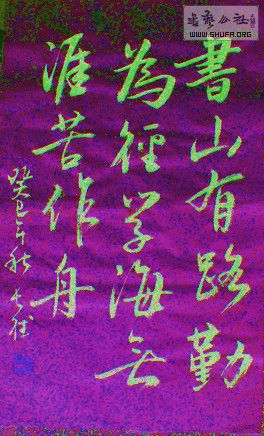 書山有路勤
為徑学海無
涯苦作舟
癸巳年秋
WWW.SHUFA.ORG